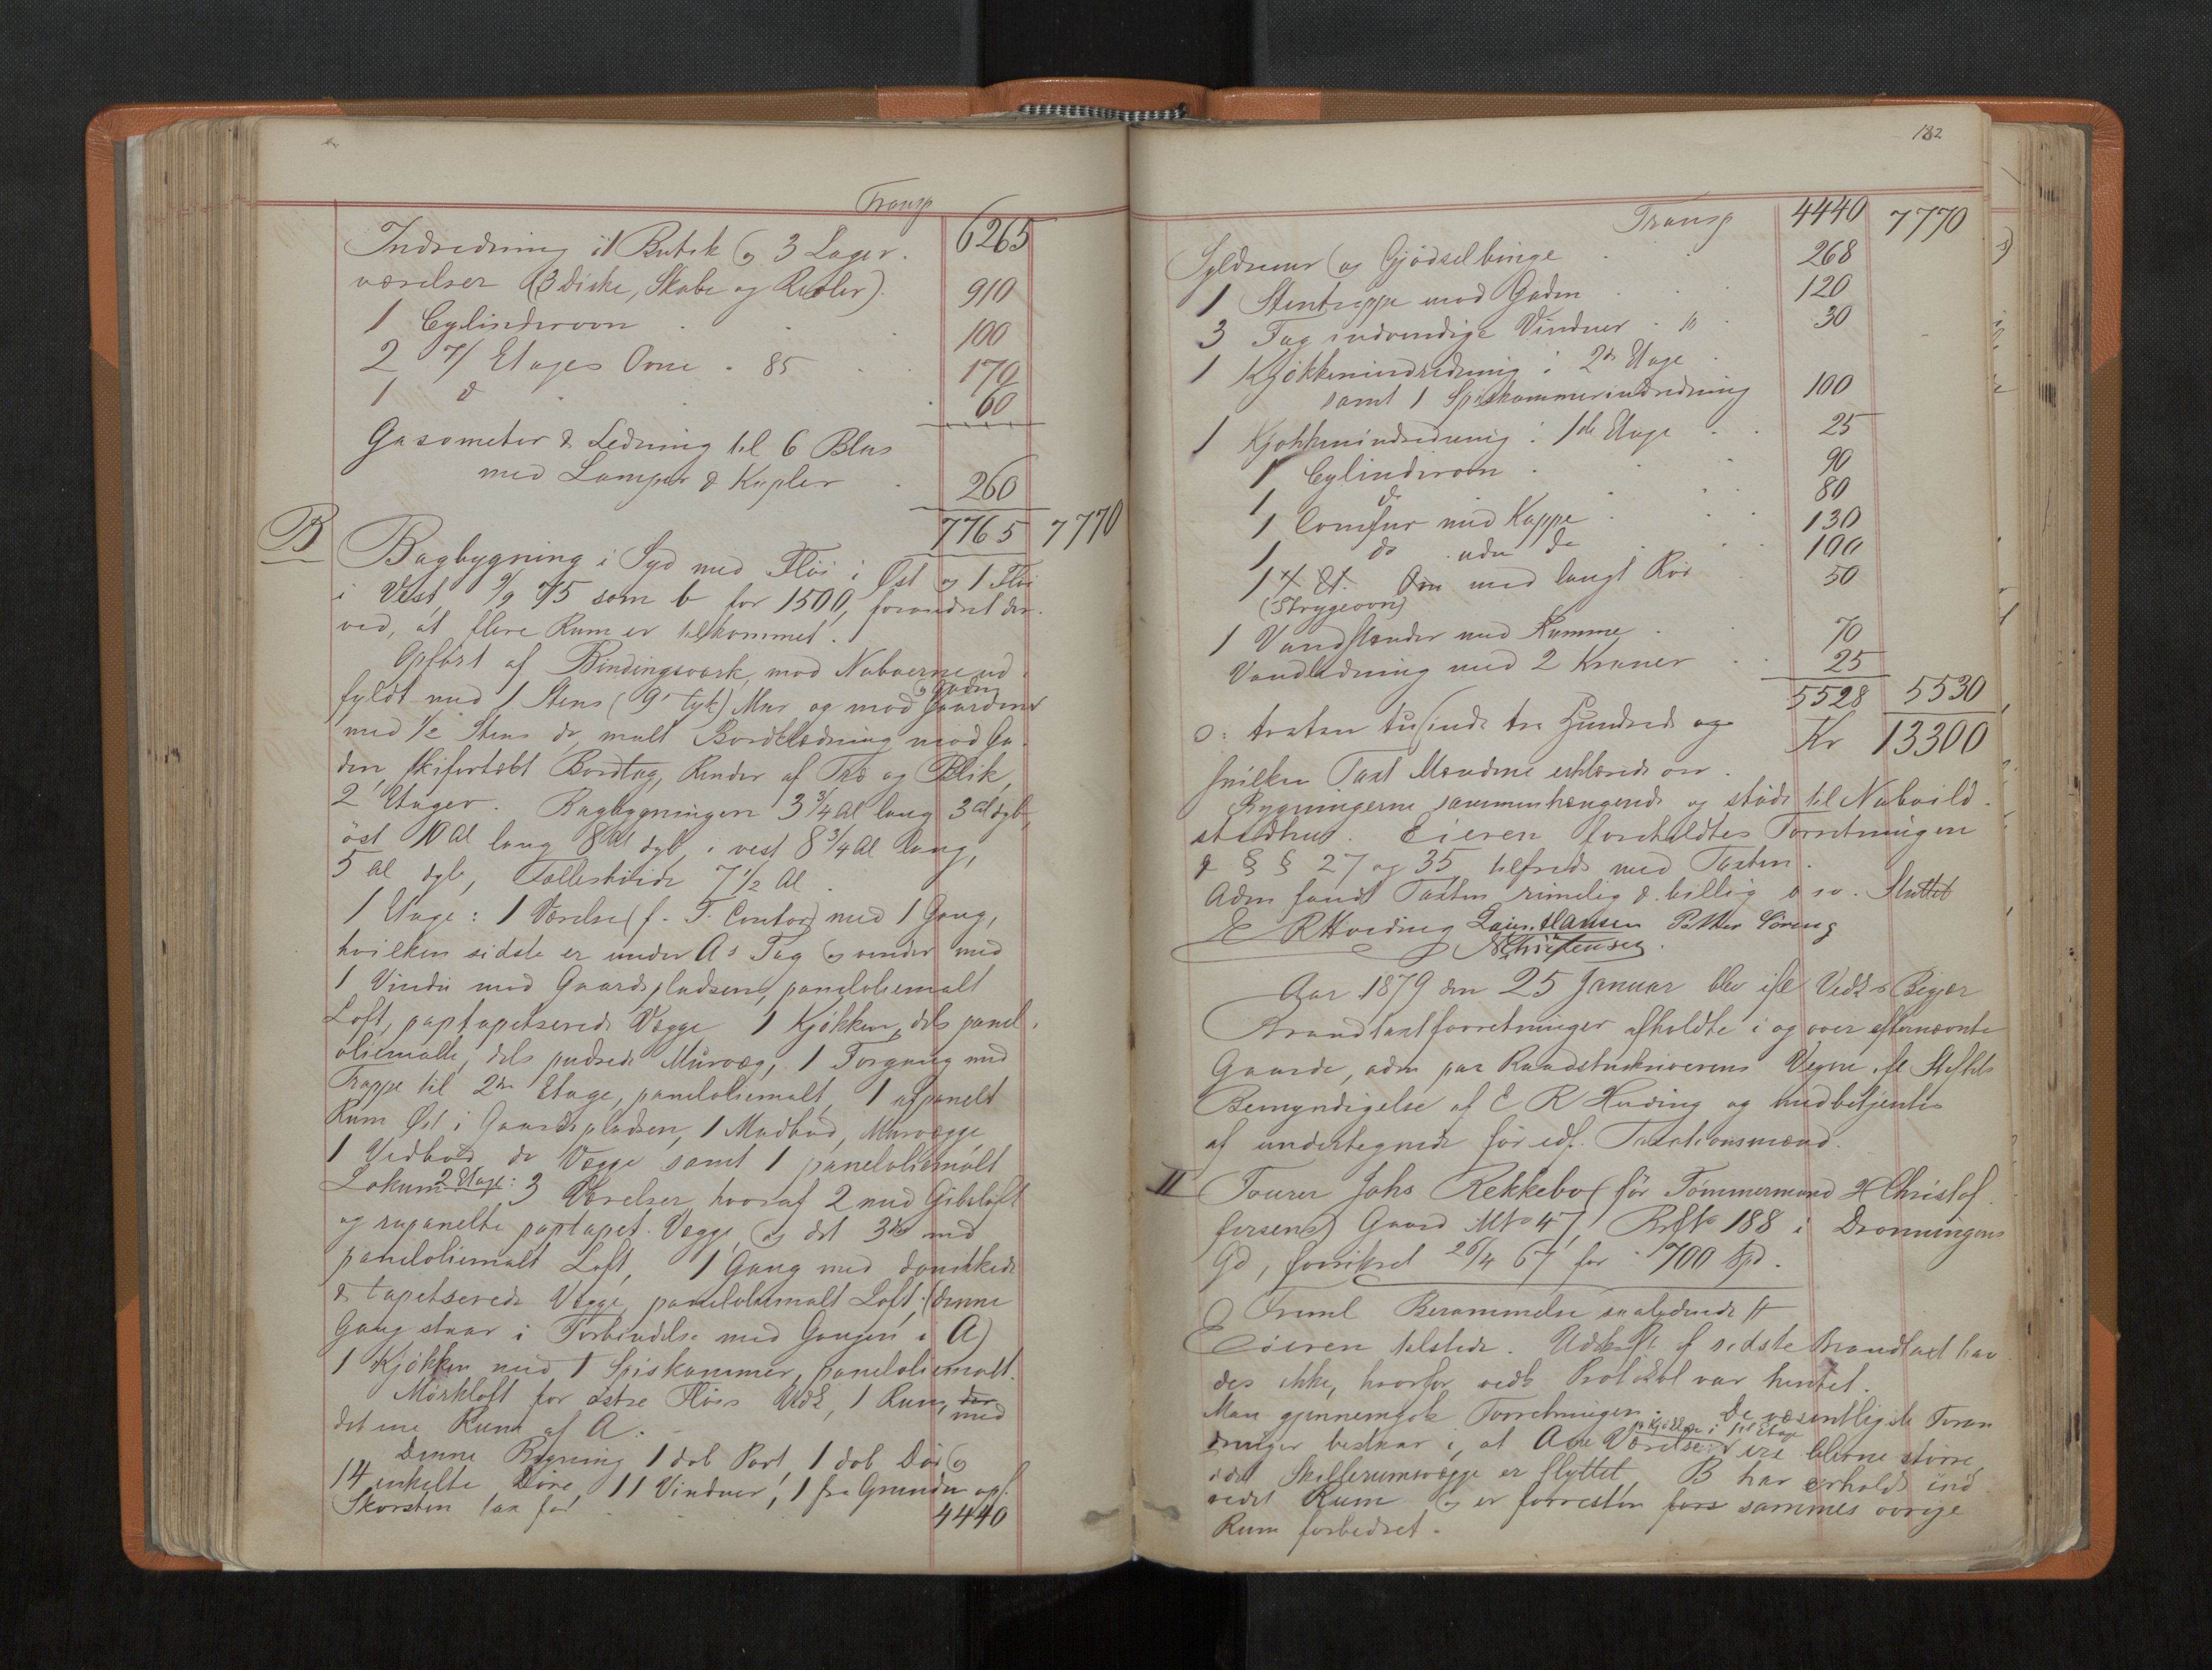 Transp
Indredning i 1 Butik og 3 Lager- 6265
værelser (3 Diske, Skabe og Reoler). 910
1 Cylinderovn 100
2 4/ Etages Ovne - 85 170
1 d 60
Gasometer & Ledning til 6 Blus
med Lamper & Kupler 260
7765 7770
B Bagbygning i Syd med Fløi i Øst og 1 Fløi
i Vest, 75 som b for 1500, forandret der-
ved, at flere Rum er tilkommet.
Opført af Bindingsværk, mod Naboerne ud-
fyldt med 1 Stens (9" tyk) Mur og mod Gaarden
og Gaden
med 1/2 Stens do, malt Bordklædning mod Ga-
den, skifertækt Bordtag, Render af Træ og Blik,
2 Etager. Bagbygningen 3 3/4 Al lang 3 Al dyb,
öst 10 Al lang 8 Al dyb, i vest 8 3/4 Al lang,
5 Al dyb, Fælleshöide 7 1/2 Al.
1 Etage: 1 Værelse (f. T. Contor) med 1 Gang,
hvilken sidste er under A's Tag og under med
1 Vindu mod Gaardspladsen, paneloliemalt
Loft, paptapetserede Vægge, 1 Kjøkken, dels panel-
oliemalte, dels pudsede Murvæg, 1 Forgang med
Trappe til 2den Etage, paneloliemalt, 1 afpanelt
Rum Øst i Gaardspladsen, 1 Madbod, Murvægge
1 Vedbod do Vægge samt 1 paneloliemalt
Lokum. 2 Etage: 3 Værelser, hvoraf 2 med Gibsloft
og rupanelte paptapet. Vægge, og det 3die med
paneloliemalt Loft, 1 Gang med
& tapetserede Vægge, paneloliemalt Loft, (denne
Gang staar i Forbindelse med Gangen i A)
1 Kjøkken med 1 Spiskammer, paneloliemalt.
Mørkloft for østre Fløis Vedk, 1 Rum, der
med
det ene Rum af A.
Denne Bygning 1 dob Port, 1 dob Dør og
14 enkelte Döre, 11 Vinduer, 1 fra Grunden opf.
Skorsten 4440
132
Transp 4440 7770
Sylrum og Gjödselbinge 268
1 Stentrappe mod Gaden 120
3 Fag indvendige Vinduer - 10 30
1 Kjøkkenindredning i 2den Etage
samt 1 Spiskammerindredning 100
1 Kjøkkenindredning i 1ste Etage 25
1 Cylinderovn 90
1 do 80
1 Comfur med Kappe 130
1 do uden do 100
1 Et. Ovn med langt Rör 50
(Strygeovn)
1 Vandstænder med Kumme 70
Vandledning med 2 Kraner 25
5528 5530
ɔ: tretten tusinde tre Hundrede og Kr 13300
hvilken Taxt Mændene erklærede over.
Bygningerne sammenhængende og stöde til Naboild-
stedhus. Eieren foreholdtes Forretningen
§ § 27 og 35 tilfreds med Taxten.
Adm fandt Taxten rimelig & billig Sluttet
E R Hveding Laur. Hansen Petter Söreng
N Christensen
Aar 1879 den 25 Januar blev ifl Vedk's Begjær
Brandtaxtforretninger afholdte i og over efternævnte
Gaarde, adm paa Raadstuskriverens Vegne ifl Stiftets
Bemyndigelse af E R Hveding og medbetjente
af undertegnede för edf. Taxationsmænd.
II Tourer Johs Rekkebo (för Tömmermand H Christof-
fersens) Gaard Mto 47, Rdto 188 i Dronningens
Gd, forsikret 26/4 67 for 1700 Spd.
Freml Berammelse saalydende #
Eieren tilstede. Udskrift af sidste Brandtaxt hav-
des ikke, hvorfor vedk Protokol var hentet.
Man gjennemgik Forretningen. De væsentligste Foran-
pr Kjökken i 1ste Etage
dringer bestaar i, at A ene Værelse er blevne större,
idet Skillerumsvægge er flyttet. B har erholdt ind-
redet Rum og er forresten fors sammes øvrige
Rum forbedret.